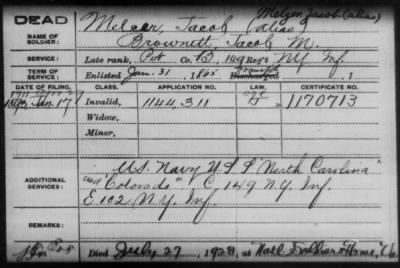 DEAD Melzer, Jacob (alias) Melzen Jacob (alias)
NAME OF SOLDIER: Brownell, Jacob M.
SERVICE: Late rank, Pvt Co. B, 149 Reg't NY Inf.
TERM OF SERVICE: Enlisted Jan. 31, 1865 Discharged , 1
DATE OF FILING. CLASS. APPLICATION NO. LAW. CERTIFICATE NO.
Jan. 17 Invalid, 1144.311 1170713
Widow,
Minor,
ADDITIONAL SERVICES: U.S. Navy U S S "North Carolina"
and "Colorado" C 149 N.Y. Inf.
E 102 N.Y. Inf.
REMARKS:
Died July 27, 1928, at Nat'l Soldiers Home,